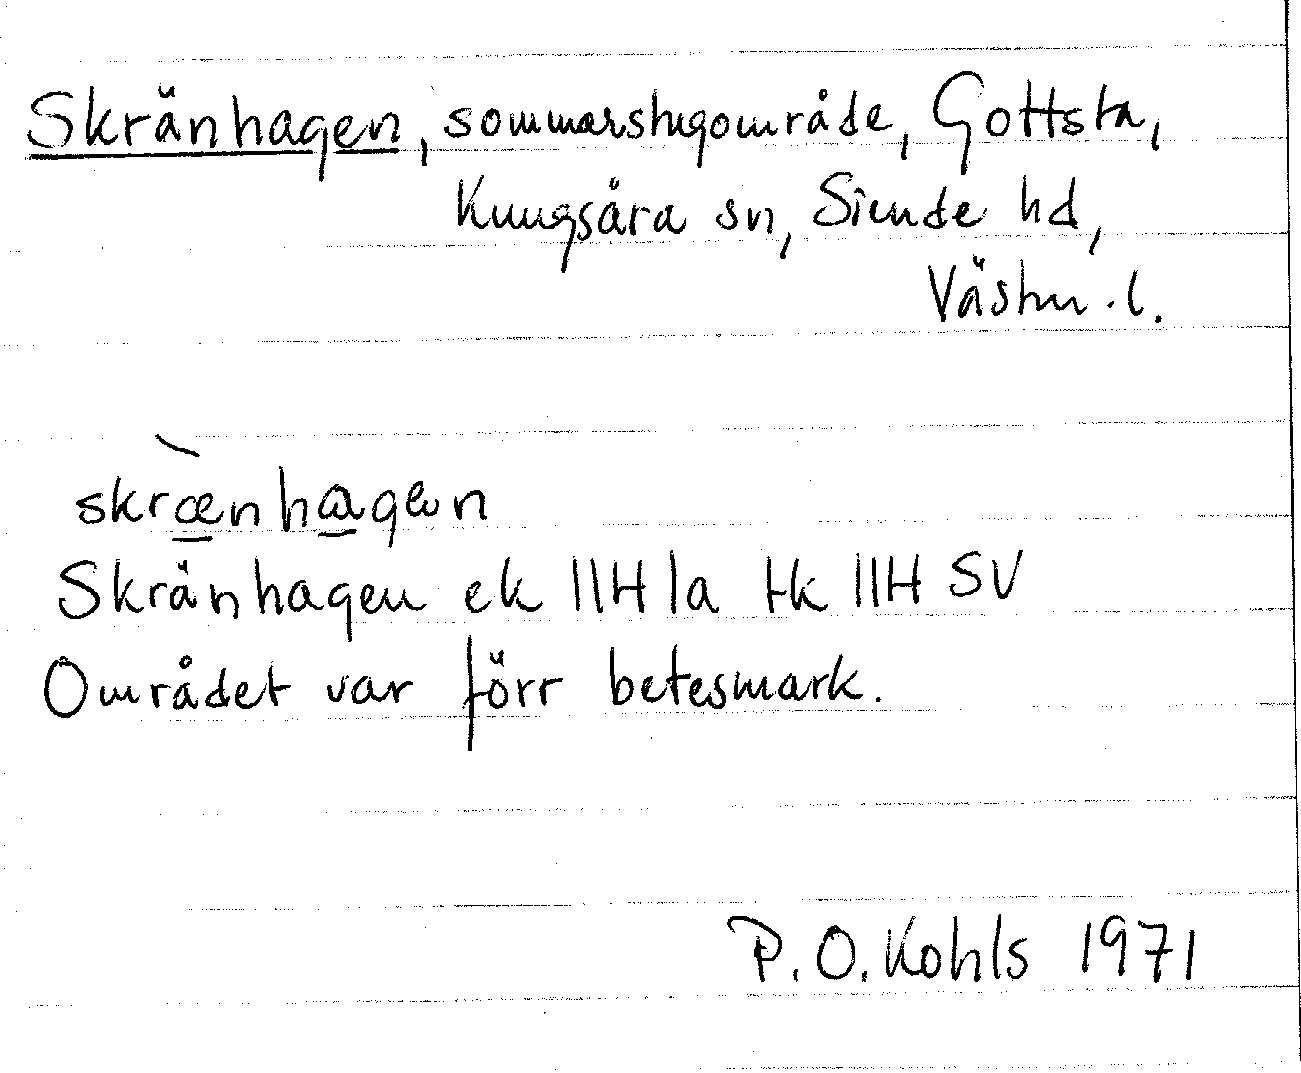 Skränhagen, sommarstugområde, Gottsta,
Kungsåra sn, Siende hd,
Västm. l.
skrænhagen
Skränhagen ek 11H 1a tk 11H SV
Området var förr betesmark.
P. O. Kohls 1971